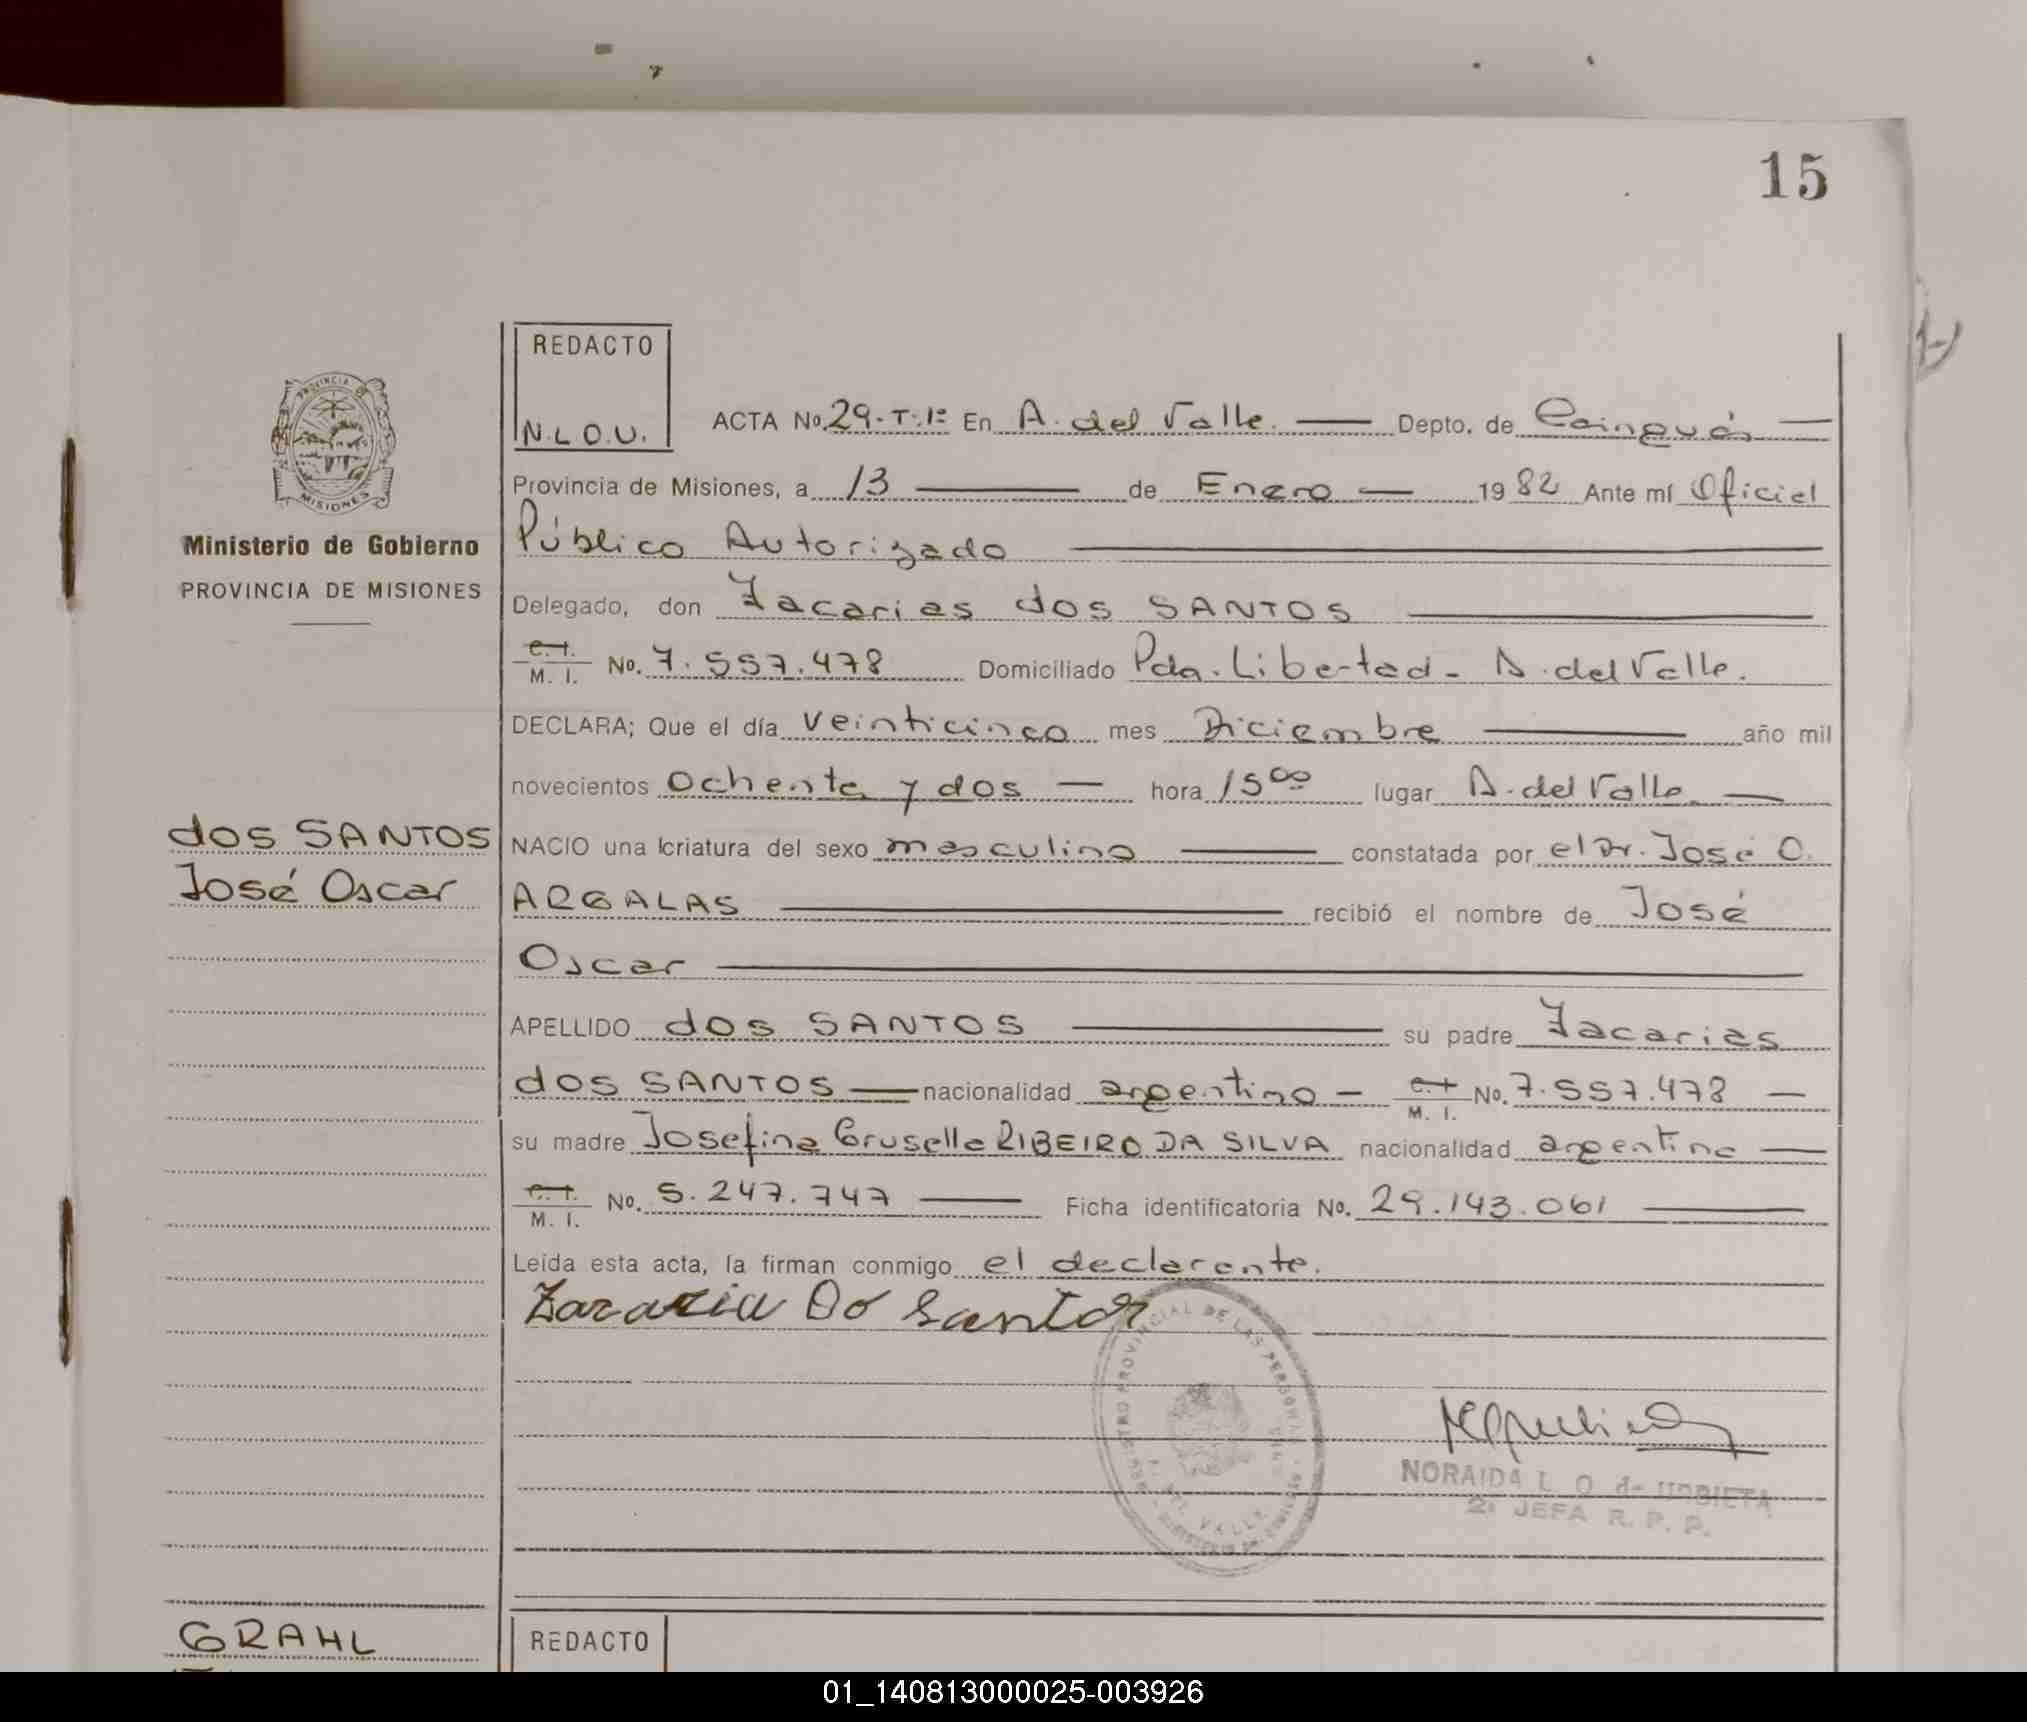 15
REDACTO
N.L.O.U.
ACTA No. 29-T:1º En A. del Valle. Depto. de Cainguás
Provincia de Misiones, a 13 de Enero 1982 Ante mí Oficial
Público Autorizado
Delegado, don Zacarias dos SANTOS
C. I.
M. I. No. 7.557.478 Domiciliado Pda. Libertad - A. del Valle.
DECLARA; Que el día veinticinco mes Diciembre año mil
novecientos ochenta y dos hora 15⁰⁰ lugar A. del Valle
NACIO una criatura del sexo masculino constatada por el Dr. José O.
ARGALAS recibió el nombre de José
Oscar
APELLIDO dos SANTOS su padre Zacarias
dos SANTOS nacionalidad argentino C. I. M. I. No. 7.557.478
su madre Josefina Gruselle RIBEIRO DA SILVA nacionalidad argentina
C. I.
M. I. No. 5.247.747 Ficha identificatoria No. 29.143.061
Leída esta acta, la firman conmigo el declarante.
Zararia Do Santos
NORAIDA L. O. de URBIETA
2ª JEFA R. P. P.
REGISTRO PROVINCIAL DE LAS PERSONAS
A. DEL VALLE
PROVINCIA DE
MISIONES
Ministerio de Gobierno
PROVINCIA DE MISIONES
dos SANTOS
José Oscar
GRAHL
REDACTO
01_140813000025-003926